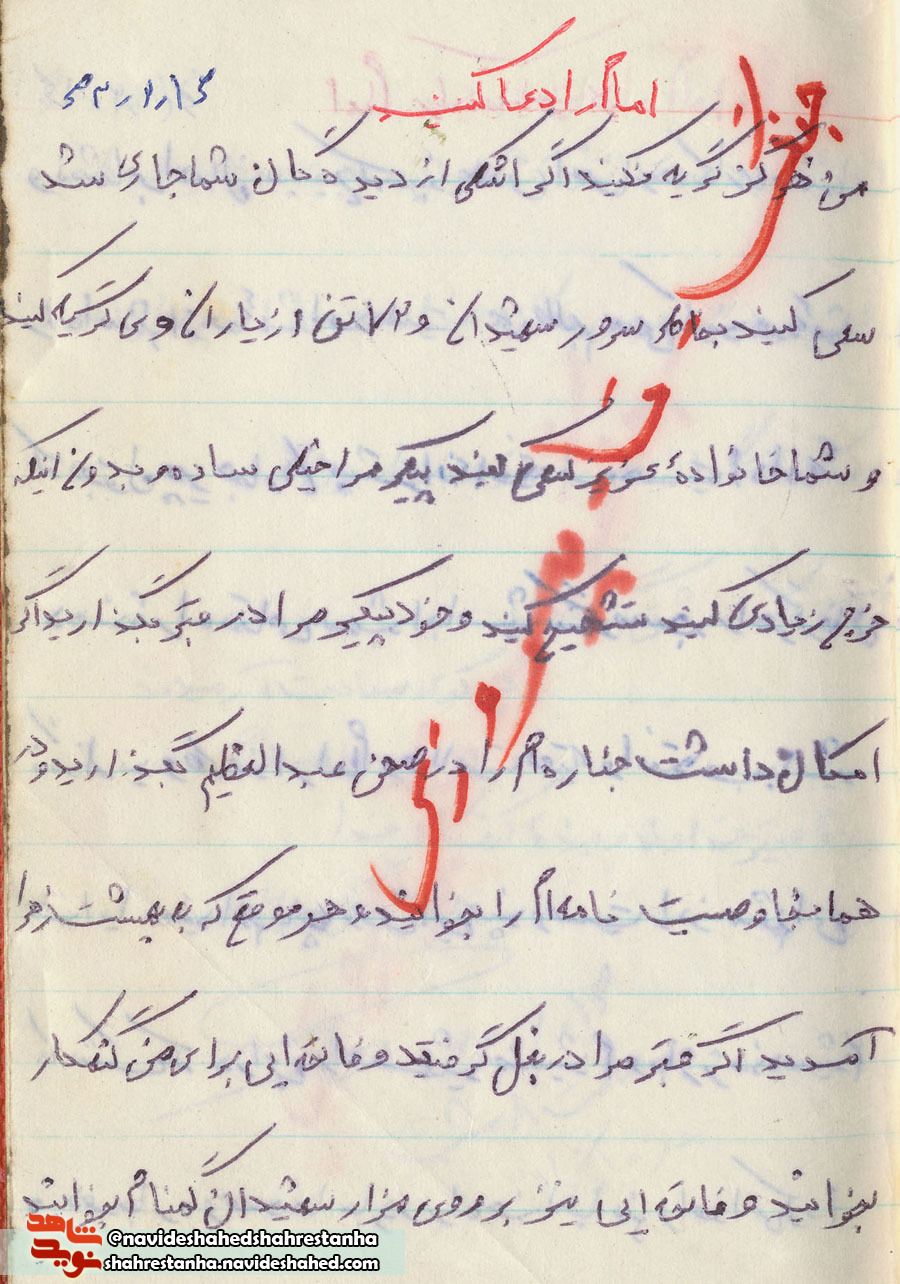 امام را دعا کنید
من هرگز گریه مکنید اگر اشکی از دیده گان شما جاری شد
سعی کنید بیاد سرور شهیدان و ۷۲ تن از یاران وی گریه کنید
و شما خانوادهٔ عزیز سعی کنید پیکر مرا خیلی ساده و بدون اینکه
خرج زیادی کنید تشییع کنید و خود پیکر مرا در قبر بگذارید اگر
امکان داشت جنازه ام را در صحن عبدالعظیم بگذارید و در
همانجا وصیت نامه ام را بخوانید و هر موقع که به بهشت زهرا
آمدید اگر قبر مرا در بغل گرفتید و فاتحه ایی برای من گنهکار
بخوانید و فاتحه ایی نیز بر روی مزار شهیدان گمنام بخوانید
شاهد
نوید
@navideshahedshahrestanha
shahrestanha.navideshahed.com